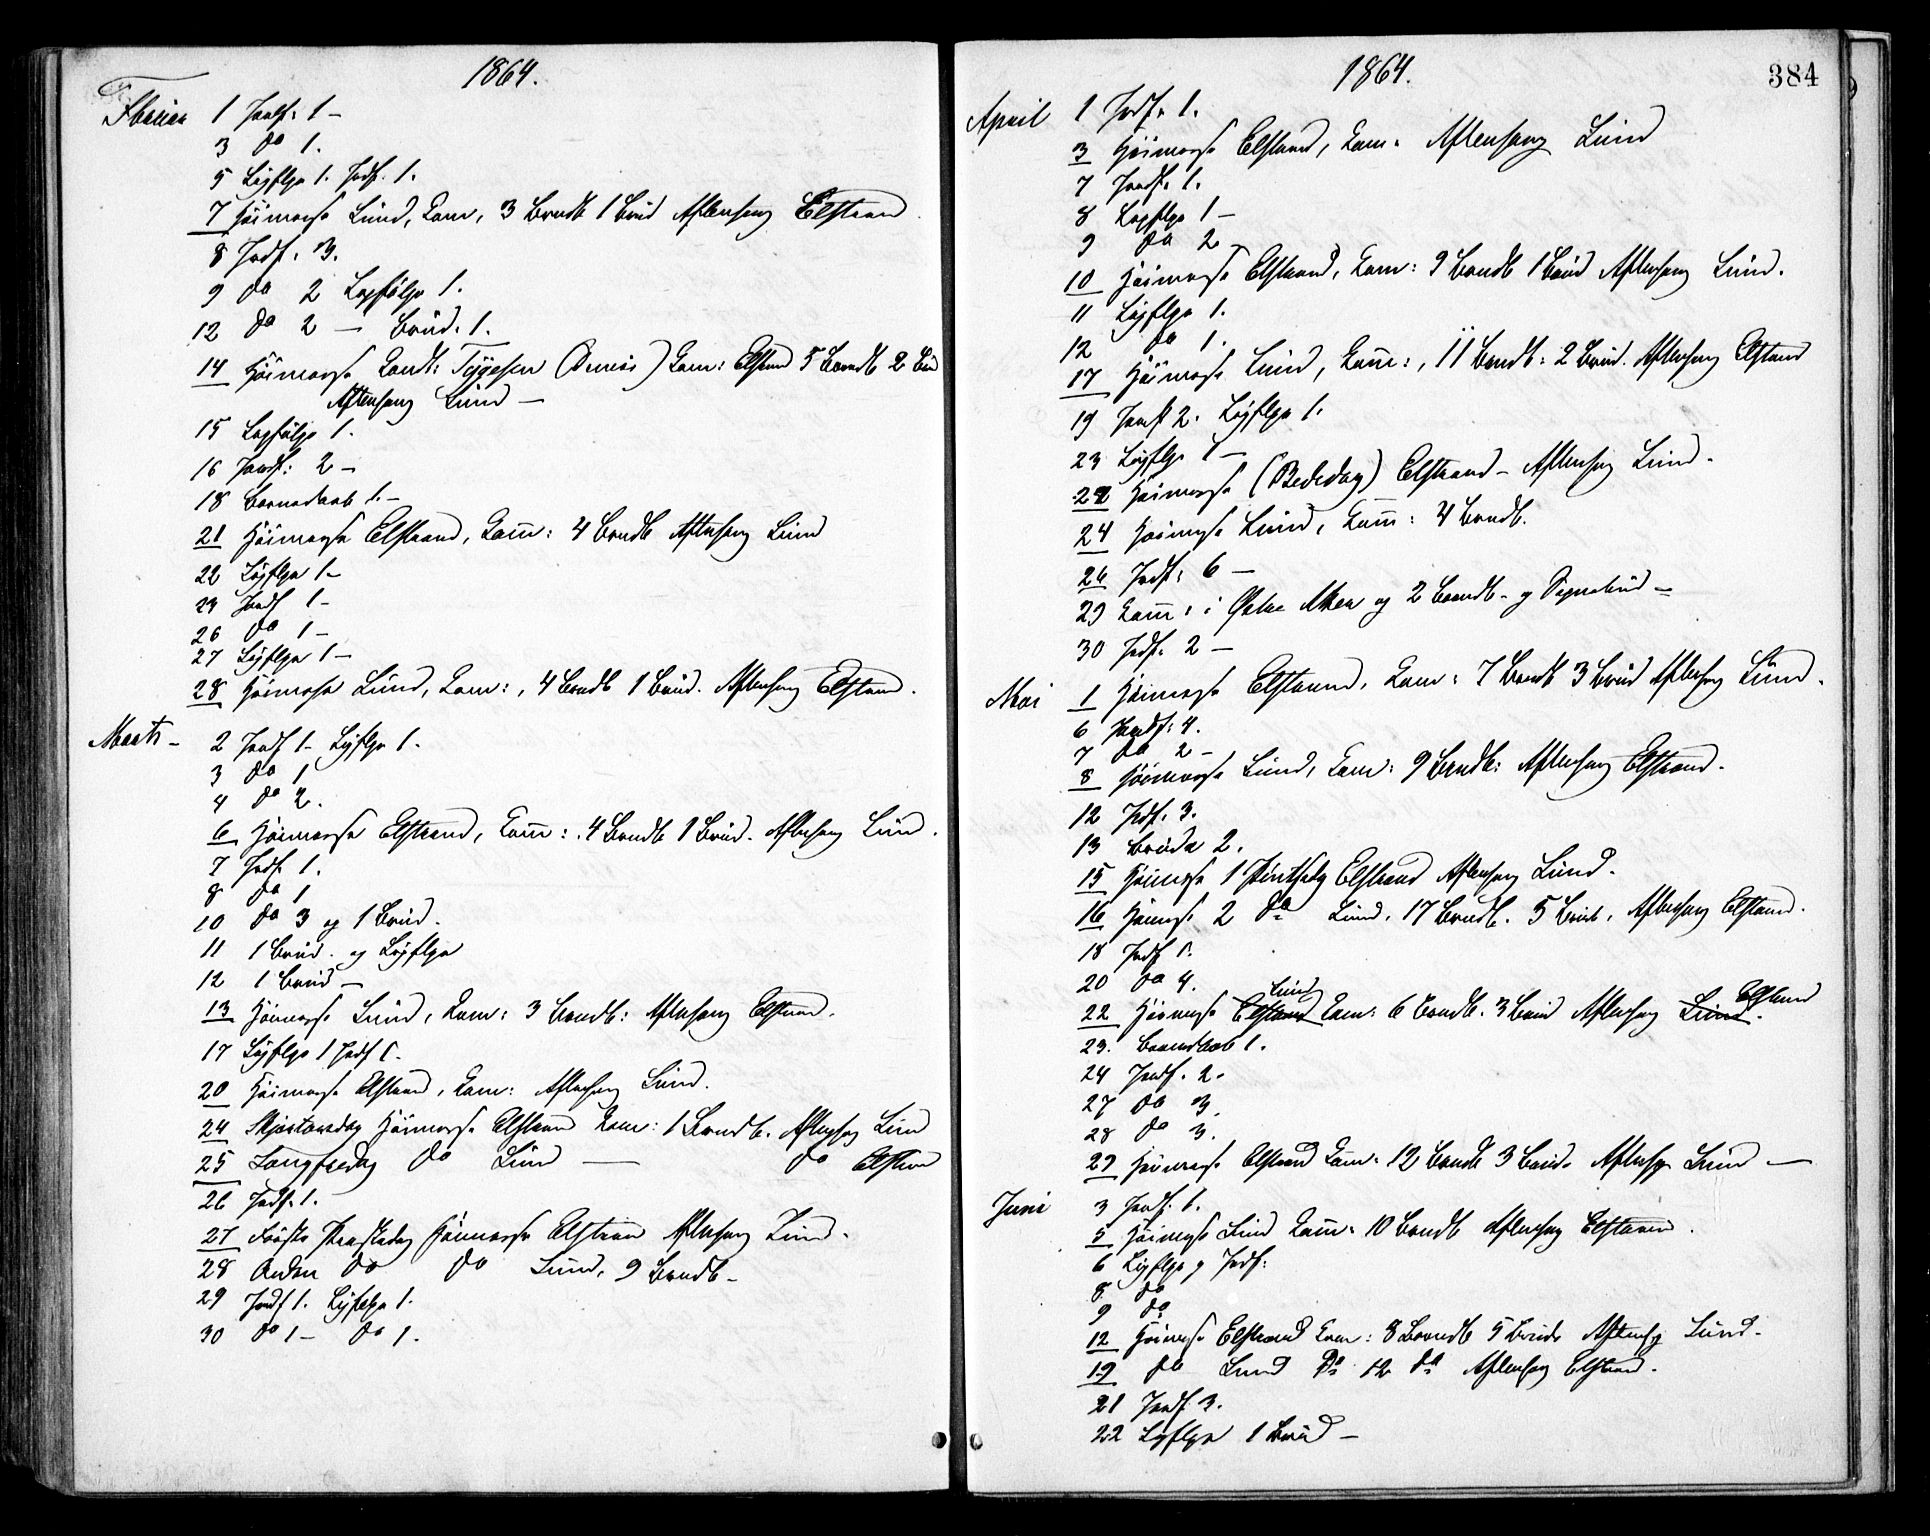 1864.
Februar 1 Jordf: 1 –
3 do 1.
5 Ligflge 1. Jordf. 1.
7 Høimesse Lund, Com, 3 Barndb 1 Brud Aftensang Elstrand
8 Jordf. 3.
9 do 2 Ligfølge 1.
12 do 2 – Brud. 1.
14 Høimesse Cand: Tygesen Com: Elstrand 5 Barndb 2 Brud
Aftensang Lund –
15 Ligfølge 1.
16 Jordf: 2 –
18 Barnedaab 1. –
21 Høimesse Elstrand, Com: 4 Barndb Aftensang Lund
22 Ligflge 1 –
23 Jordf 1 –
26 do 1 –
27 Ligflge 1 –
28 Høimesse Lund, Com:, 4 Barndb 1 Brud. Aftensang Elstrand.
Marts – 2 Jordf 1 – Ligflge 1.
3 do 1
4 do 2.
6 Høimesse Elstrand, Com: 4 Barndb 1 Brud. Aftensang Lund.
7 Jordf. 1.
8 do 1
10 do 3 og 1 Brud.
11 1 Brud. og Ligflge
12 1 Brud –
13 Høimesse Lund, Com: 3 Barndb: Aftensang Elstrand.
17 Ligflge 1 Jordf 1.
20 Høimesse Elstrand, Com: Aftensang Lund.
24 Skjærtorsdag Høimesse Elstrand Com: 1 Barndb. Aftensang Lund
25 Langfredag do Lund — do Elstrand
26 Jordf. 1.
27 Første Paaskedag Høimesse Elstrand Aftensang Lund.
28 Anden do do Lund, 9 Barndb –
29 Jordf 1. Ligflge 1.
30 do 1 – do 1.
1864. 384
April 1 Jordf. 1.
3 Høimesse Elstrand, Com. Aftensang Lund
7 Jordf. 1.
8 Ligflge 1 –
9 do 2
10 Høimesse Elstrand, Com: 9 Barndb 1 Brud Aftensang Lund.
11 Ligflge 1.
12 do 1.
17 Høimesse Lund, Com:, 11 Barndb: 2 Brud. Aftensang Elstrand
19 Jordf 2. Ligflge 1.
23 Ligflge 1 –
22 Høimesse (Bededag) Elstrand – Aftensang Lund.
24 Høimesse Lund, Com: 4 Barndb.
26 Jordf: 6 –
29 Com: i Østre Aker og 2 Barndb. og Sognebud –
30 Jordf. 2 –
Mai 1 Høimesse Elstrand, Com: 7 Barndb 3 Brud Aftensang Lund.
6 Jordf: 4.
7 do 2 –
8 Høimesse Lund, Com: 9 Barndb: Aftensang Elstrand.
12 Jordf. 3.
13 Brude 2.
15 Høimesse 1 Pintsedg Elstrand Aftensang Lund.
16 Høimesse 2 do Lund. 17 Barndb. 5 Brud. Aftensang Elstrand.
18 Jordf 1.
20 do 4.
22 Høimesse Elstrand Lund Com: 6 Barndb. 3 Brud Aftensang Lund. Elstrand
23. Barnedaab 1.
24 Jordf. 2.
27 do 3.
28 do 3.
29 Høimesse Elstrand Com. 12 Barndb 3 Brud. Aftensg Lund –
Juni 3 Jordf. 1.
5 Høimesse Lund Com. 10 Barndb Aftensang Elstrand.
6 Ligflge og Jordf:
8 do
9 do
12 Høimesse Elstrand Com: 8 Barndb 5 Brude Aftensg Lund.
19 do Lund do 12 do Aftensang Elstrand.
21 Jordf. 3.
22 Ligflge 1 Brud –